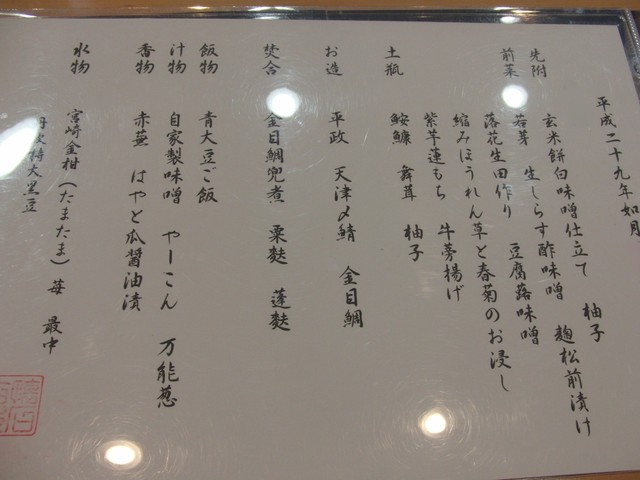 平成二十九年如月
先附 玄米餅白味噌仕立て 柚子
前菜 若芽 生しらす酢味噌 麹松前漬け
落花生田作り 豆腐蕗味噌
縮みほうれん草と春菊のお浸し
紫芋蓮もち 牛蒡揚げ
土瓶 鮟鱇 舞茸 柚子
お造 平政 天津〆鯖 金目鯛
焚合 金目鯛兜煮 粟麩 蓬麩
飯物 青大豆ご飯
汁物 自家製味噌 やーこん 万能葱
香物 赤蕪 はやと瓜醤油漬
水物 宮崎金柑(たまたま) 苺 最中
丹波特大黒豆